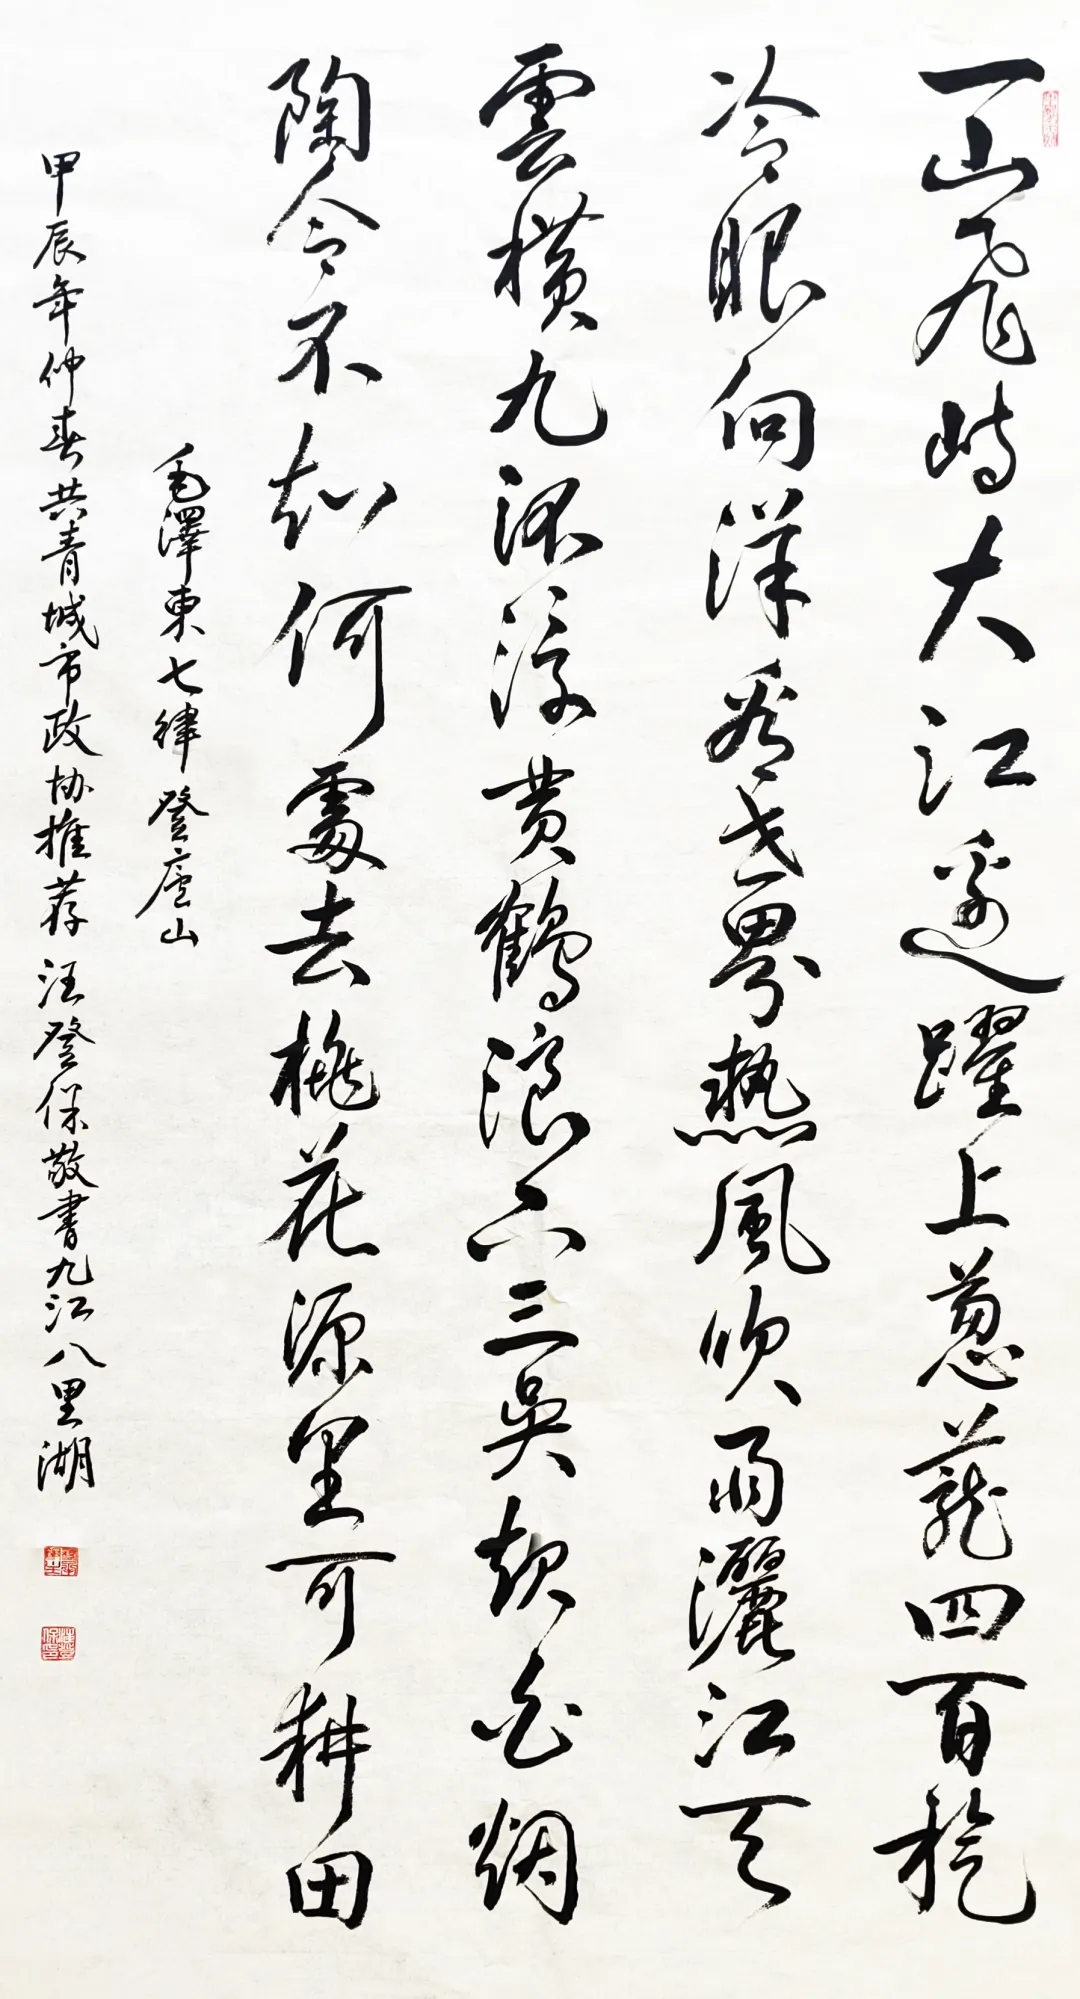 一山飛峙大江邊躍上葱蘢四百旋
冷眼向洋看世界熱風吹雨灑江天
雲橫九派浮黄鶴浪下三吳起白烟
陶令不知何處去桃花源里可耕田
毛澤東七律登廬山
甲辰年仲春共青城市政协推荐汪登保敬書九江八里湖